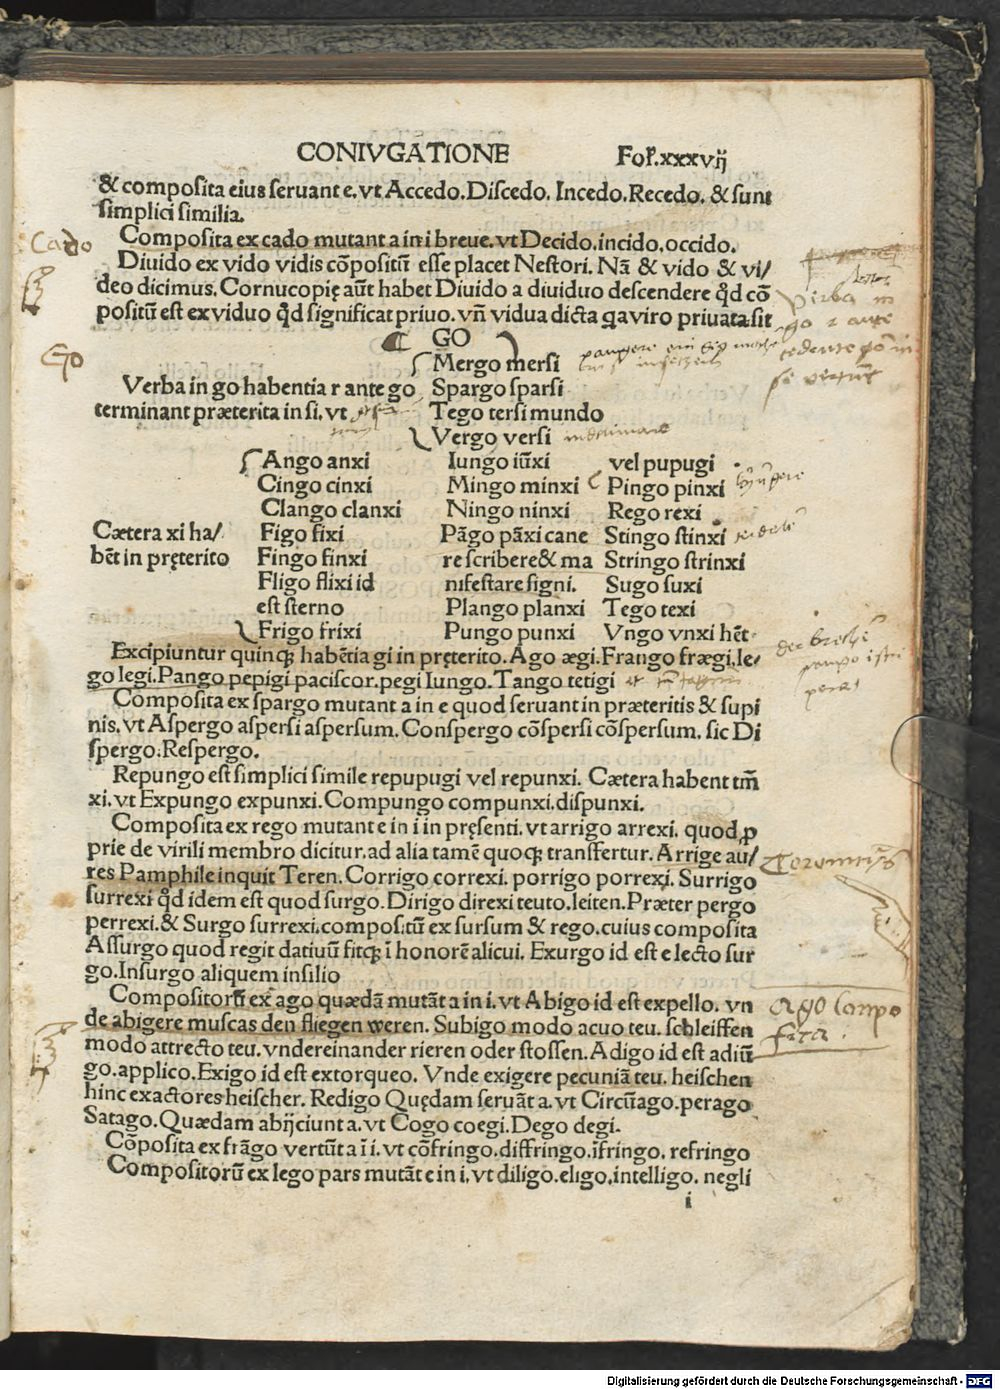 CONIVGATIONE Fol.xxxvij
& composita eius seruant e. vt Accedo. Discedo. Incedo. Recedo. & sunt
simplici similia.
Cado
Composita ex cado mutant a in i breue. vt Decido. incido. occido.
Diuido ex vido vidis cōpositū esse placet Nestori. Nā & vido & vi/
deo dicimus. Cornucopię aūt habet Diuido a diuiduo descendere qd̄ cō
positū est ex viduo qd̄ significat priuo. vn̄ vidua dicta q̄ a viro priuata sit
Verba in
go r ante
Go
GO
Mergo mersi
Verba in go habentia r ante go Spargo sparsi
terminant præterita in si. vt Tego tersi mundo
Vergo versi
Ango anxi Iungo iūxi vel pupugi
Cingo cinxi Mingo minxi Pingo pinxi
Clango clanxi Ningo ninxi Rego rexi
Cætera xi ha/ Figo fixi Pāgo pāxi cane Stingo stinxi
bēt in pręterito Fingo finxi re scribere & ma Stringo strinxi
Fligo flixi id nifestare signi. Sugo suxi
est sterno Plango planxi Tego texi
Frigo frixi Pungo punxi Vngo vnxi hēt
Excipiuntur quinqꝫ habētia gi in pręterito. Ago ægi. Frango frægi. le/
go legi. Pango pepigi paciscor. pegi Iungo. Tango tetigi
Composita ex spargo mutant a in e quod seruant in præteritis & supi
nis. vt Aspergo aspersi aspersum. Conspergo cōspersi cōspersum. sic Di
spergo. Respergo.
Repungo est simplici simile repupugi vel repunxi. Cætera habent tm̄
xi. vt Expungo expunxi. Compungo compunxi. dispunxi.
Composita ex rego mutant e in i in pręsenti. vt arrigo arrexi. quod ꝓ
prie de virili membro dicitur. ad alia tamē quoqꝫ transfertur. Arrige au/
res Pamphile inquit Teren. Corrigo correxi. porrigo porrexi. Surrigo
surrexi qd̄ idem est quod surgo. Dirigo direxi teuto. leiten. Præter pergo
perrexi. & Surgo surrexi. compositū ex sursum & rego. cuius composita
Assurgo quod regit datiuū fitqꝫ ī honorē alicui. Exurgo id est e lecto sur
go. Insurgo aliquem insilio
Compositorū ex ago quædā mutāt a in i. vt Abigo id est expello. vn
de abigere muscas den fliegen weren. Subigo modo acuo teu. schleiffen
modo attrecto teu. vndereinander rieren oder stossen. Adigo id est adiū
go. applico. Exigo id est extorqueo. Vnde exigere pecuniā teu. heischen
hinc exactores heischer. Redigo Quędam seruāt a. vt Circūago. perago
Satago. Quædam abijciunt a. vt Cogo coegi. Dego degi.
Ago Compo
sita
Cōposita ex frāgo vertūt a ī i. vt cōfringo. diffringo. ifringo. refringo
Compositorū ex lego pars mutāt e in i. vt diligo. eligo. intelligo. negli
i
Digitalisierung gefördert durch die Deutsche Forschungsgemeinschaft - DFG